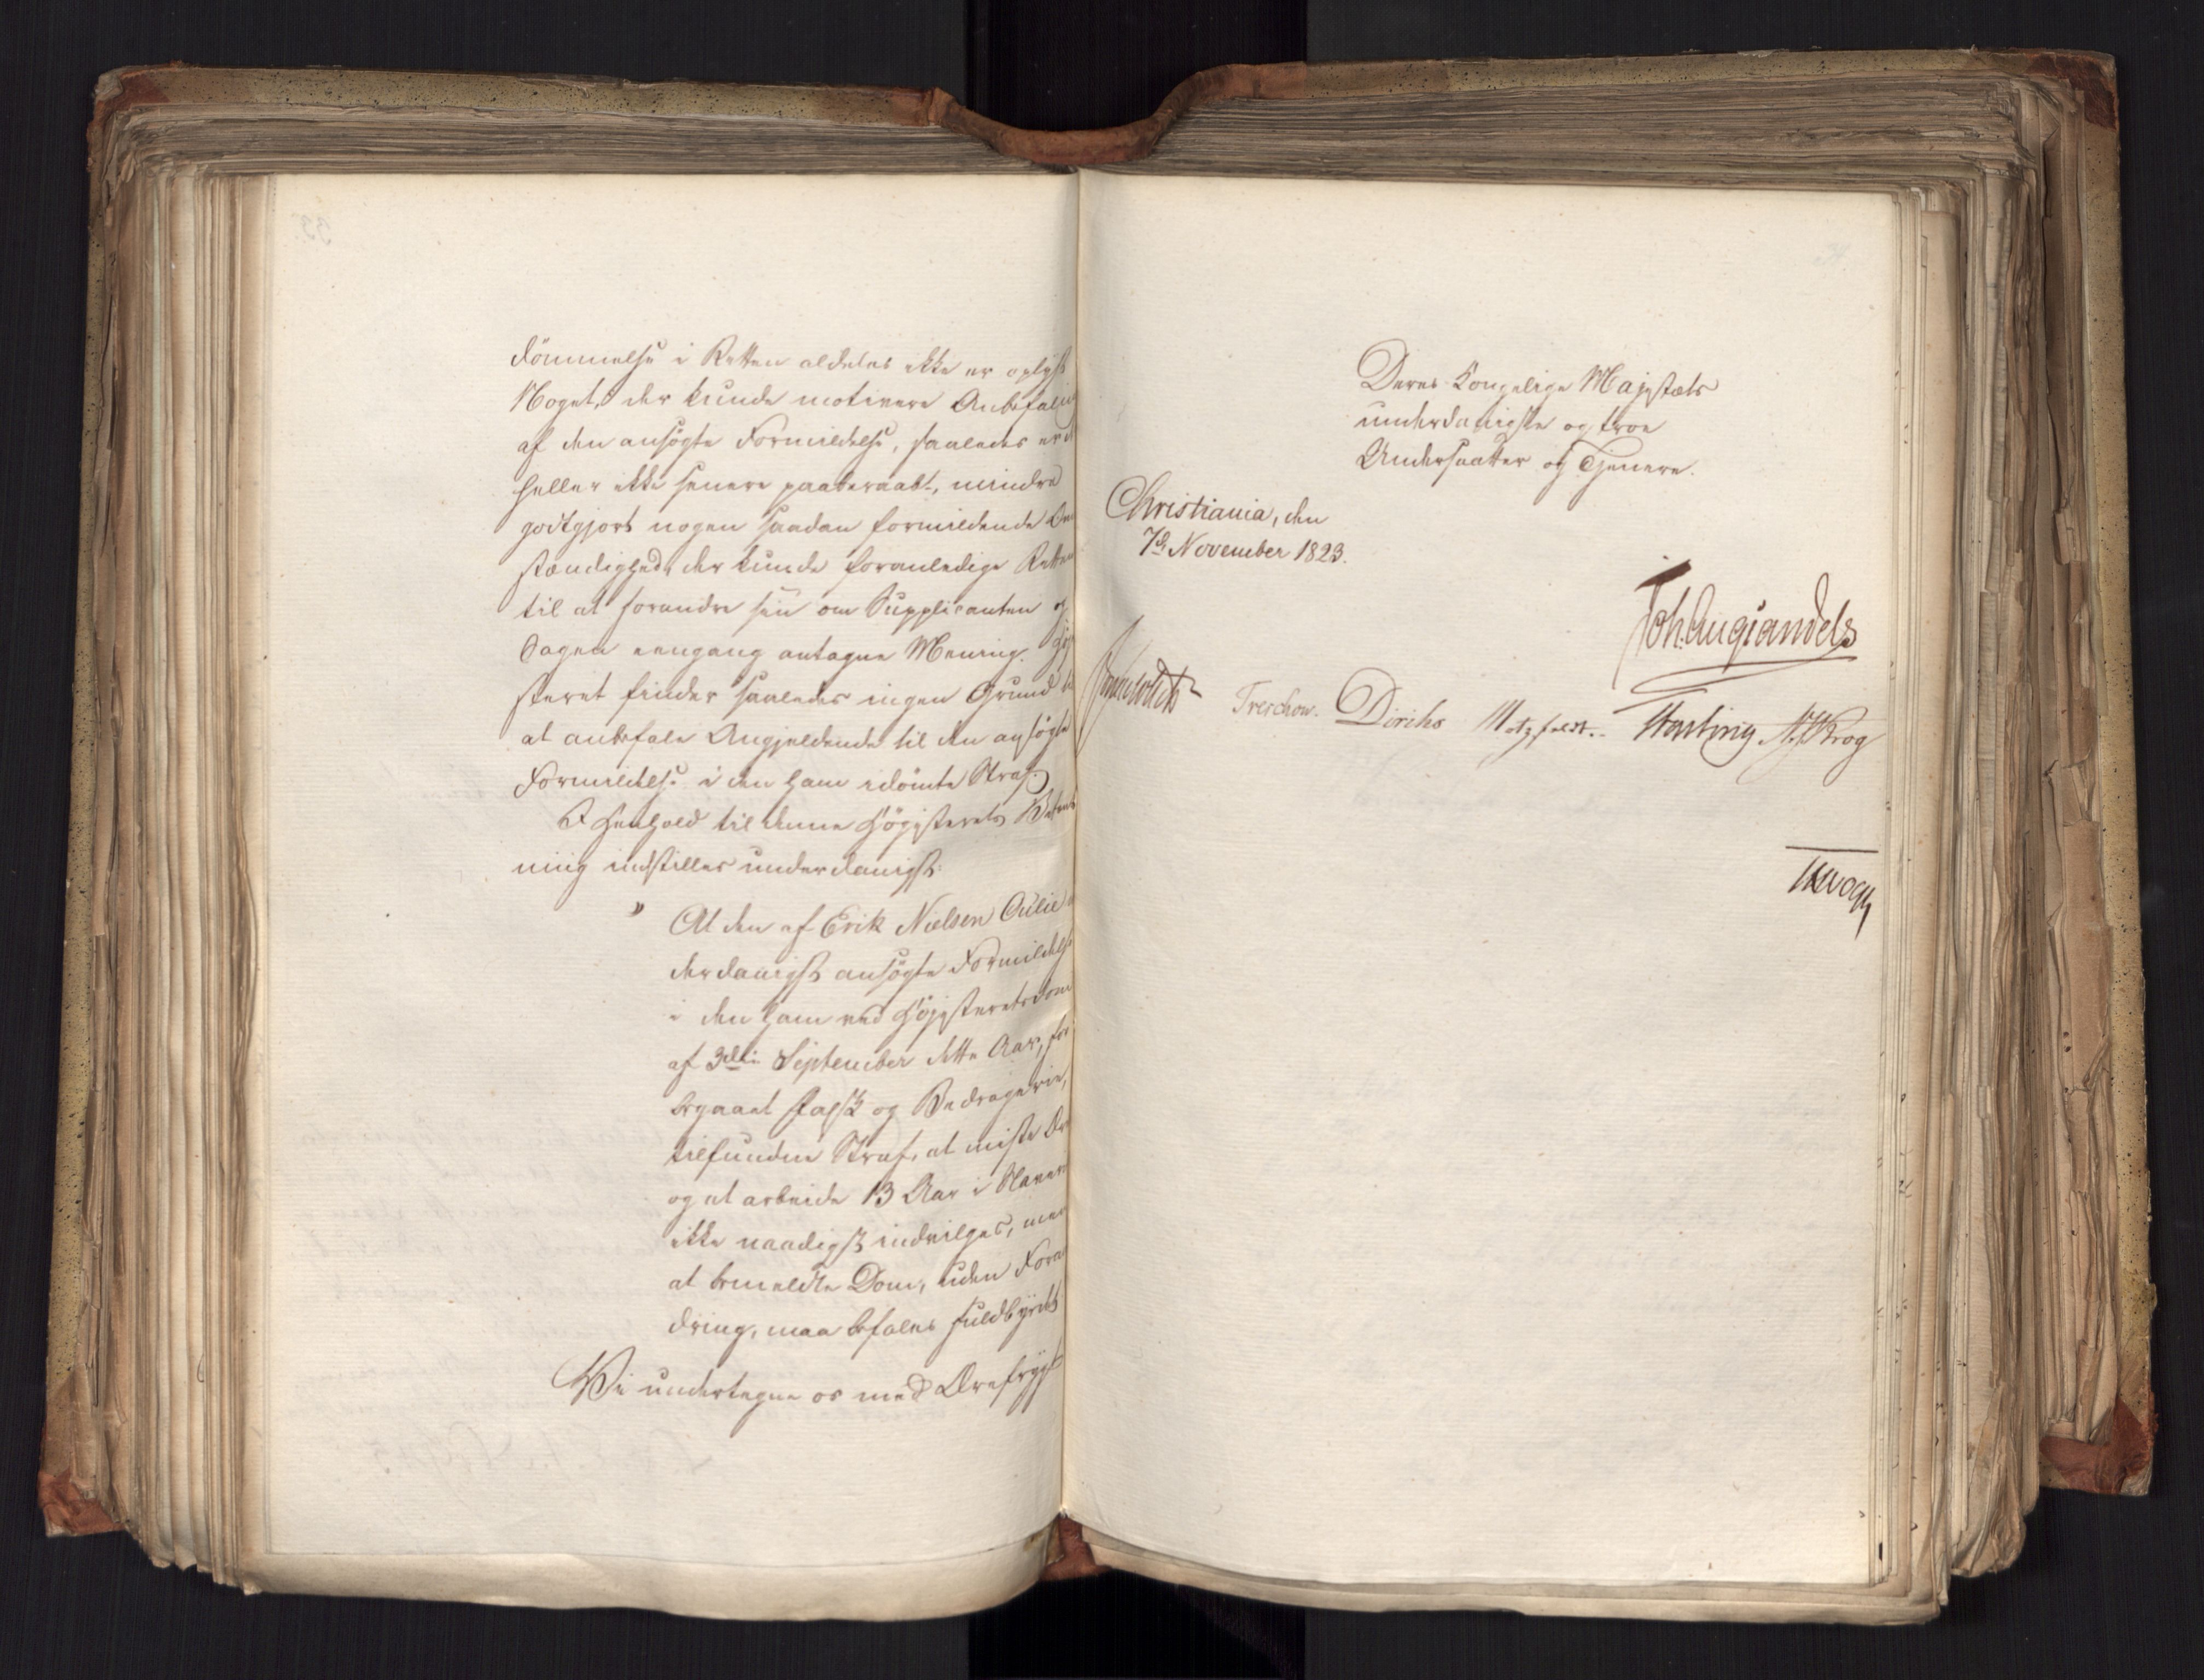 dömmelse i Retten aldeles ikke er oplyst
Noget, der kunde motivere Anbefaling
af den ansögte Formildelse, saaledes er d
heller ikke senere paaberaabt, mindre
godtgjort nogen saadan formildende Om
stændighed, der kunde foranledige Retten
til at forandre sin om Supplicanten og
Sagen eengang antagne Mening. Høj
steret finder saaledes ingen Grund
at anbefale Angjeldende til den ansögte
Formildelse i den ham idömte Straf.
I Henhold til denne Höjesterets Betænk
ning indstilles underdanigst:
" At den af Erik Nielsen Aulie
derdanigst ansögte Formildelse
i den ham ved Höjesteretsdom
af 3die September dette Aar, for
begaaet Falsk og Bedragerie,
tilfundne Straf, at miste Ære
og at arbeide 13 Aar i Slaverie
ikke naadigst indvilges, men
at bemeldte Dom, uden Foran
dring, maa befales fuldbyrdet
Vi undertegne os med Ærefrygt
Deres Kongelige Majestæts
underdanigste og troe
Undersaatter og Tjenere.
Christiania, den
7de November 1823.
Joh. Aug Sandels
Sommerhielm Treschow. Diriks Motzfeldt. Fasting N. J. Krog